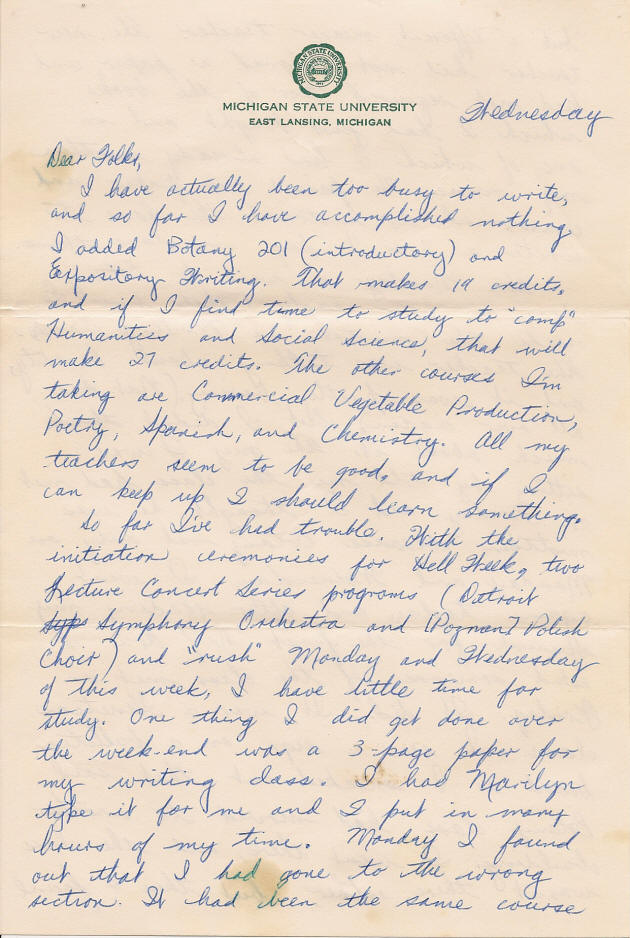 MICHIGAN STATE UNIVERSITY
EAST LANSING, MICHIGAN
Wednesday
Dear Folks,
I have actually been too busy to write,
and so far I have accomplished nothing.
I added Botany 201 (introductory) and
Expository Writing. That makes 19 credits,
and if I find time to study to "comp"
Humanities and Social Science, that will
make 27 credits. The other courses I'm
taking are Commercial Vegetable Production,
Poetry, Spanish, and Chemistry. All my
teachers seem to be good, and if I
can keep up I should learn something.
So far I've had trouble. With the
initiation ceremonies for Hell Week, two
Lecture Concert Series programs (Detroit
Symphony Orchestra and [Poznan] Polish
Choir) and "rush" Monday and Wednesday
of this week, I have little time for
study. One thing I did get done over
the week-end was a 3-page paper for
my writing class. I had Marilyn
type it for me and I put in many
hours of my time. Monday I found
out that I had gone to the wrong
section. It had been the same course